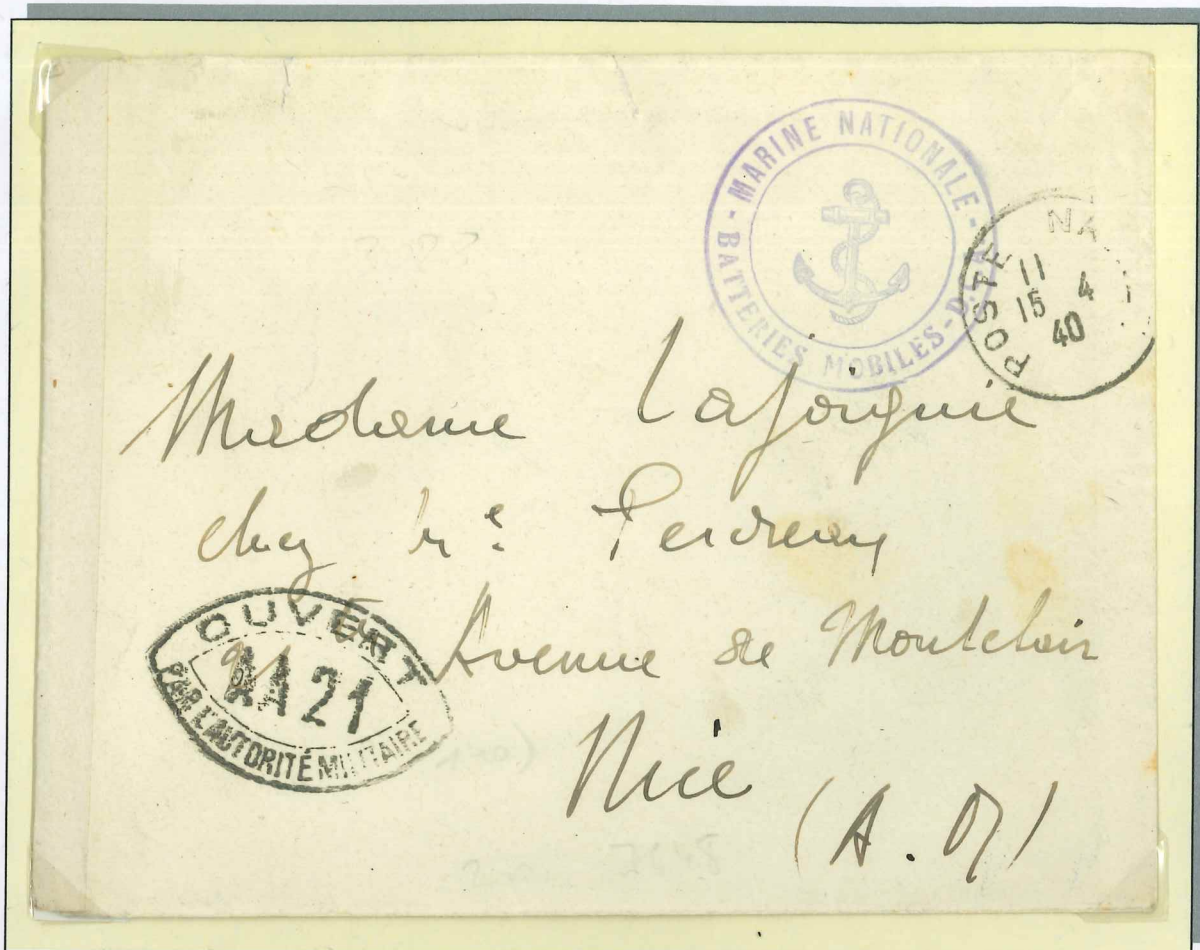 - MARINE NATIONALE -
BATTERIES MOBILES - D.
POSTE NA
11
15 4
40
Madame Lajoignie
chez Me
Avenue de Montclair
OUVERT
AA21
PAR L'AUTORITÉ MILITAIRE
Nice
(A. M)